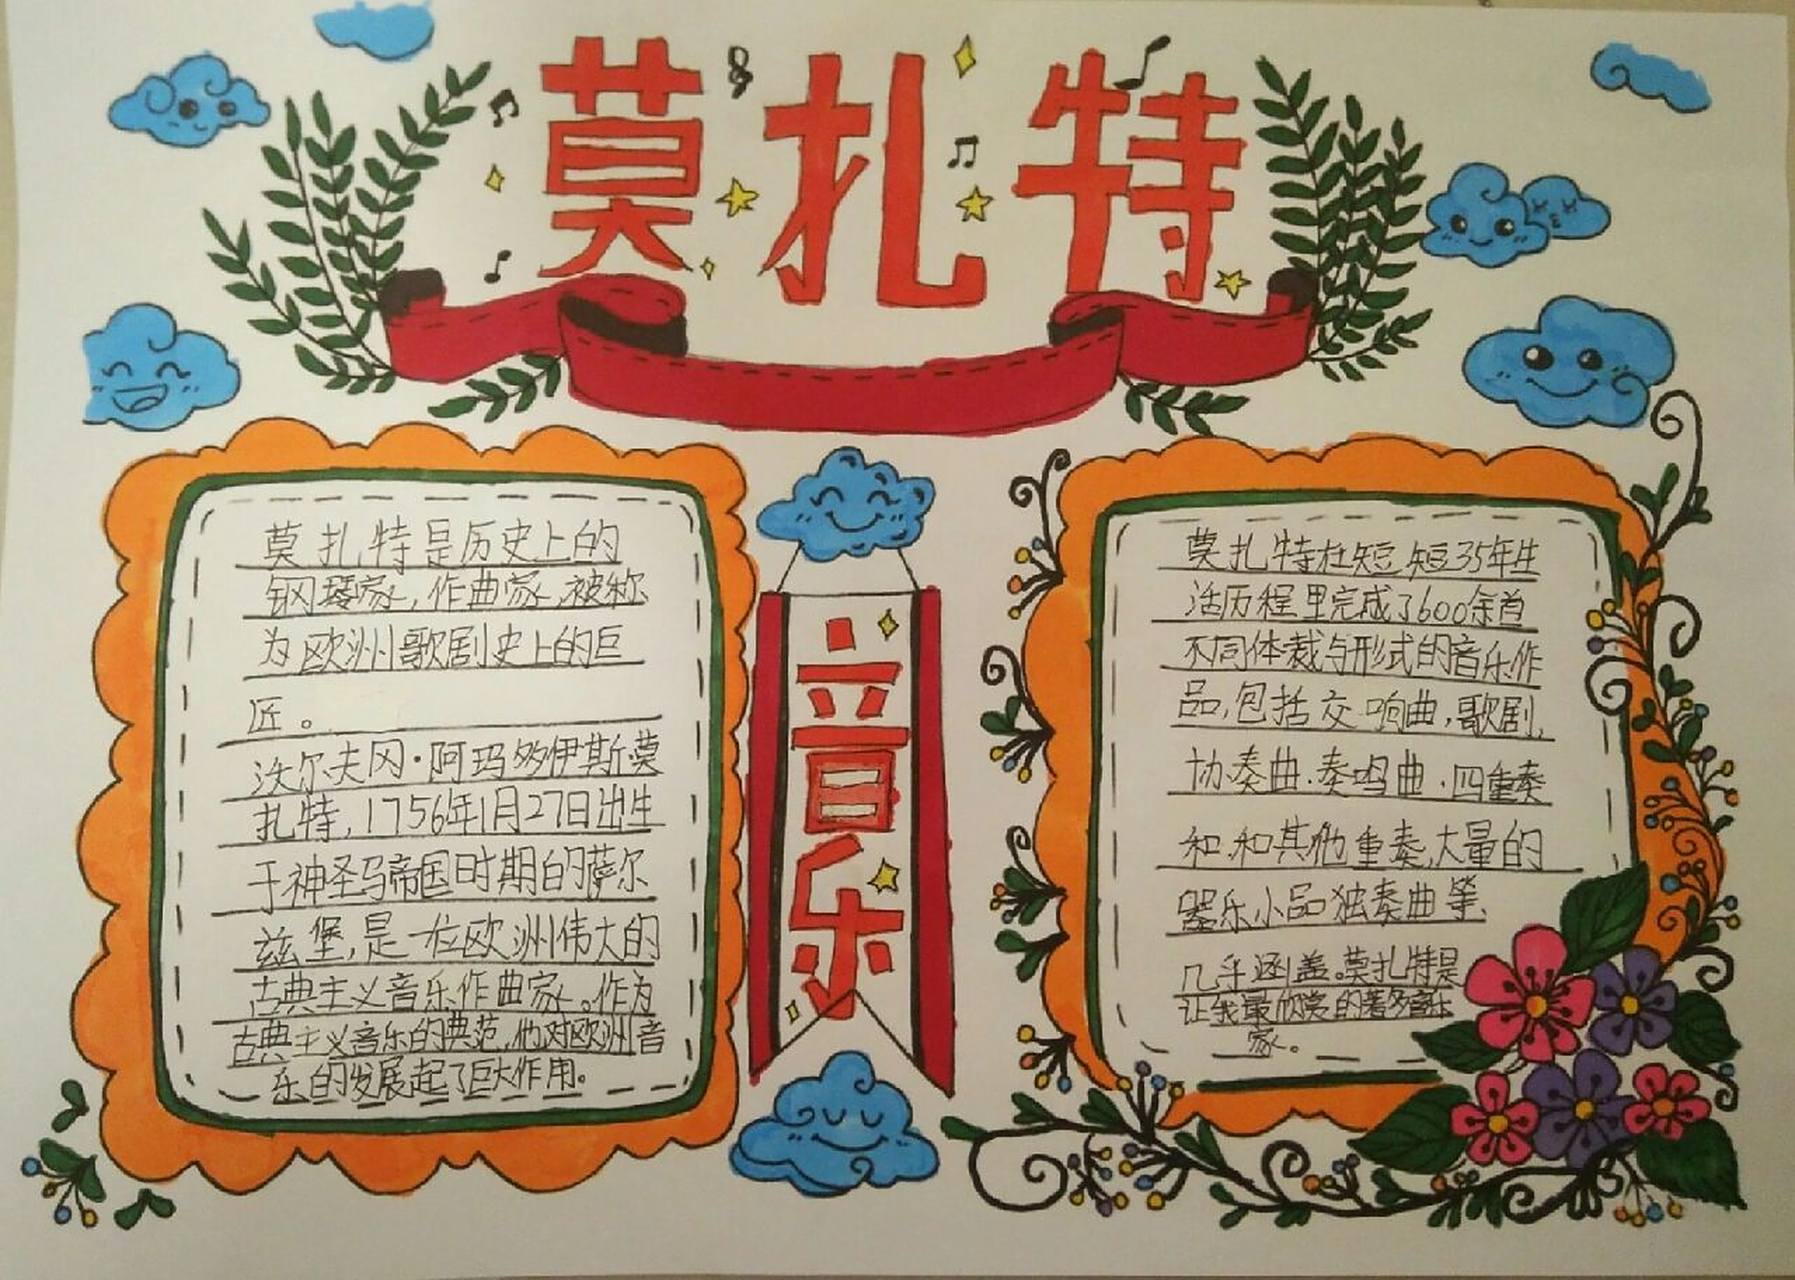 莫扎特
莫扎特是历史上的
钢琴家,作曲家,被称
为欧洲歌剧史上的巨
匠。
沃尔夫冈·阿玛多伊斯·莫
扎特,1756年1月27日出生
于神圣马帝国时期的萨尔
兹堡,是一位欧洲伟大的
古典主义音乐作曲家。作为
古典主义音乐的典范,他对欧洲音
乐的发展起了巨大作用。
音乐
莫扎特在短短35年生
活历程里完成了600余首
不同体裁与形式的音乐作
品,包括交响曲,歌剧,
协奏曲.奏鸣曲.四重奏
和.和其他重奏,大量的
器乐小品独奏曲等,
几乎涵盖。莫扎特是
让我最欣赏的著名音乐
家。